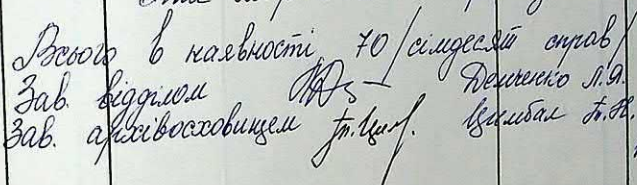 Всього в наявності 70 /сімдесят справ/
Зав. відділом Демченко Л.Я.
Зав. архівосховищем Цимбал Т.Н.